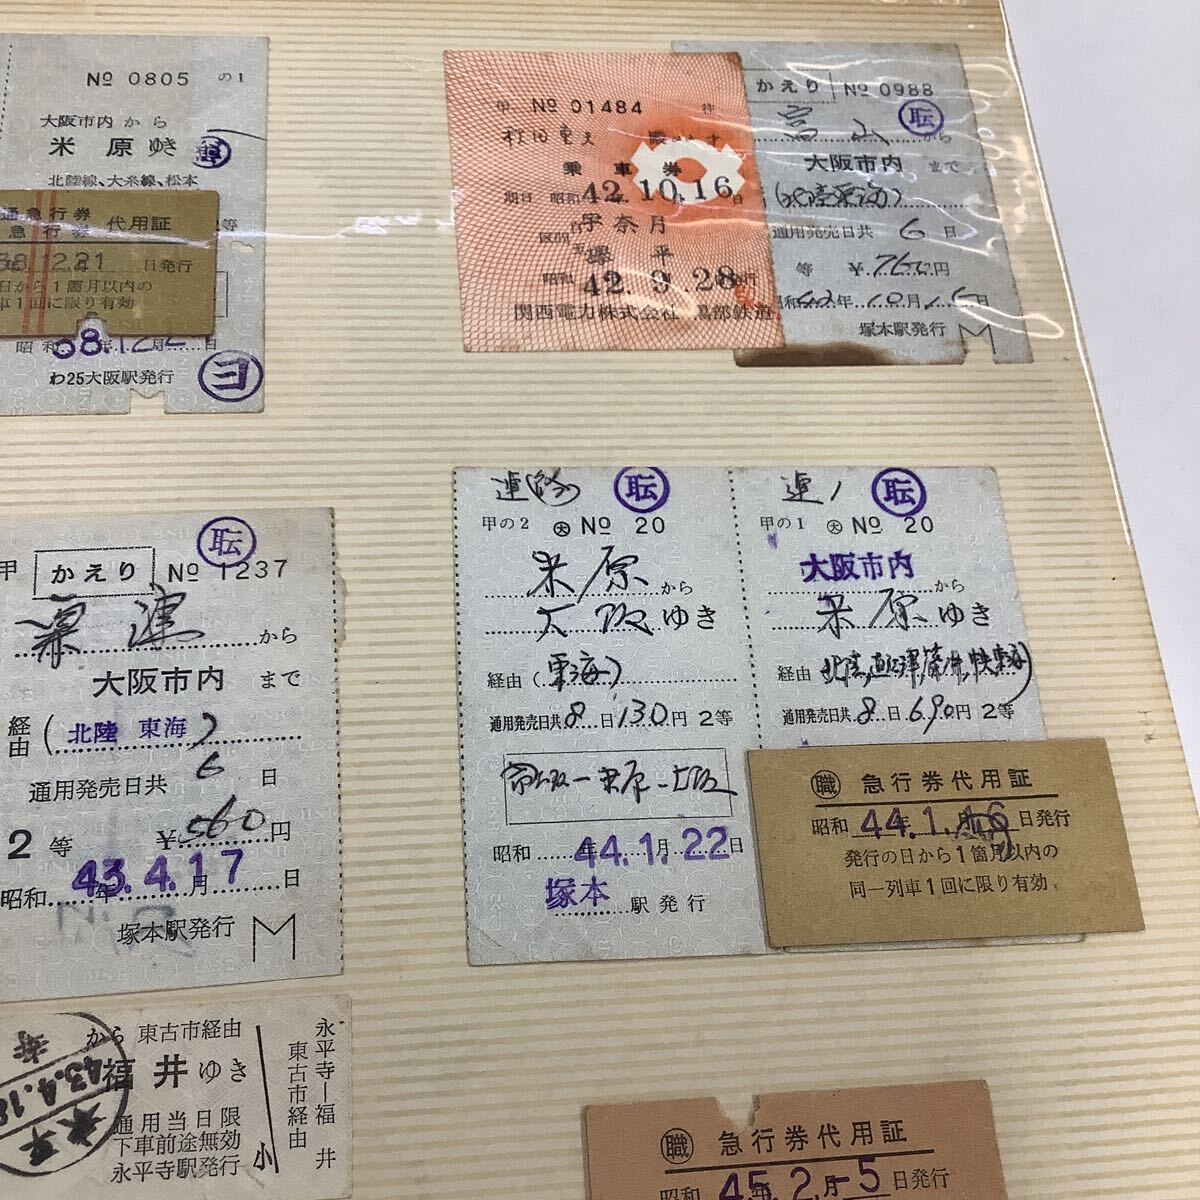 No 0805 の1
大阪市内から
米原ゆき
北陸線、大糸線、松本
通急行券
急行券 代用証
2等
38.12.21 日発行
日から1箇月以内の
車1回に限り有効
昭和 38.12.21 日
わ25大阪駅発行
ヨ
甲 No 01484 往
乗車券
期日 昭和 42.10.16 日
宇奈月
区間
欅平
昭和 42.9.28
関西電力株式会社 黒部鉄道
かえり No 0988
転
富山から
大阪市内まで
(北陸東海)
通用発売日共 6 日
等 ¥760円
昭和42年10月15日
塚本駅発行 M
転
甲 かえり No 1237
粟津から
大阪市内まで
経由(北陸 東海)
通用発売日共 6 日
2等 ¥560円
昭和 43年4月17日
塚本駅発行 M
連続 転
甲の2 大 No 20
米原から
大阪ゆき
経由(東海)
通用発売日共8日130円2等
昭和 44年1月22日
塚本駅発行
連1 転
甲の1 大 No 20
大阪市内から
米原ゆき
通用発売日共8日690円2等
職 急行券代用証
昭和 44年1月16日発行
発行の日から1箇月以内の
同一列車1回に限り有効
から 東古市経由
福井ゆき
通用当日限
下車前途無効
永平寺駅発行
小
永平寺―福井
東古市経由
43.4.18
職 急行券代用証
昭和 45年2月-5日発行